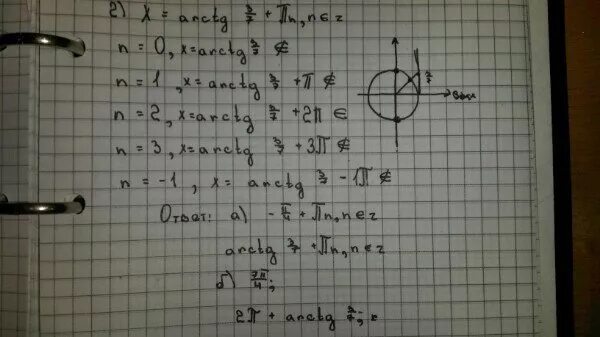 2) x = arctg 3/7 + πn, n∈z
n = 0, x=arctg 3/7 ∉
n = 1, x= arctg 3/7 +π ∉
n = 2, x=arctg 3/7 + 2π ∈
n = 3, x=arctg 3/7 + 3π ∉
n = -1, x= arctg 3/7 - 1π ∉
Ответ: а) - π/4 + πn, n∈z
arctg 3/7 + πn, n∈z
б) 7π/4;
2π + arctg 3/7;